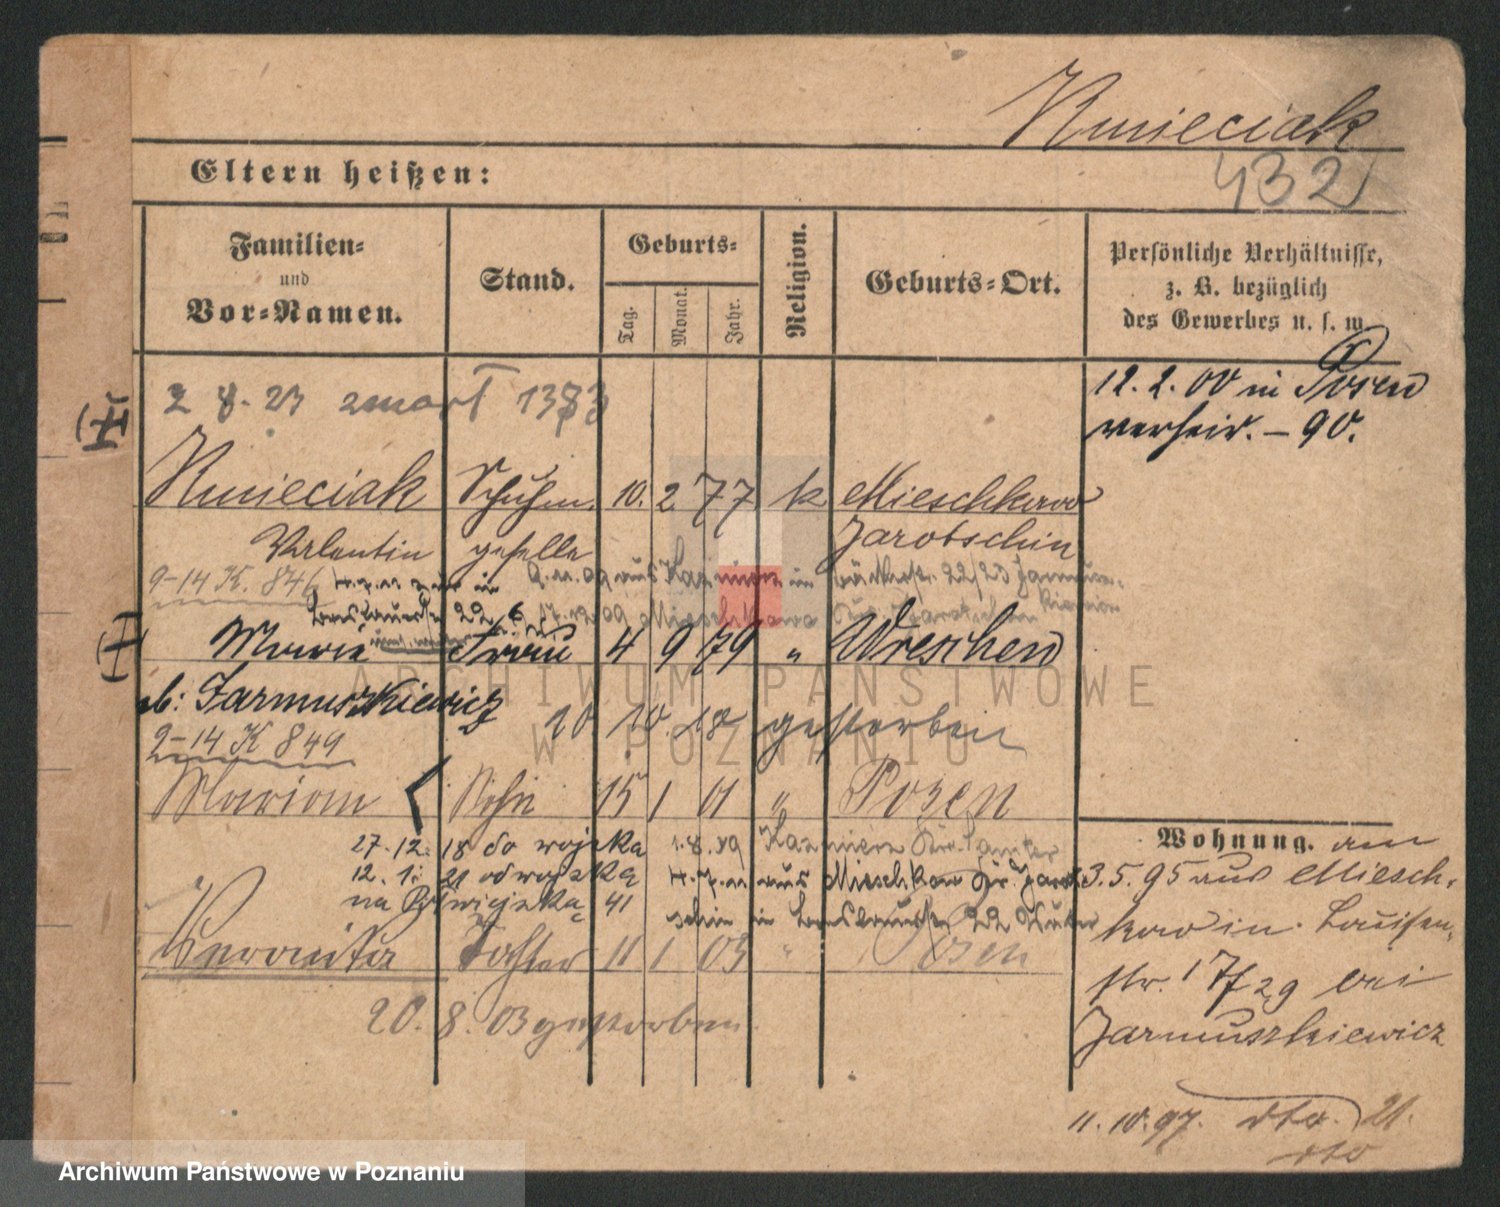 Kmieciak
432
Eltern heißen:
Familien-
und
Vor-Namen.
Stand.
Geburts-
Tag.
Monat.
Jahr.
Religion.
Geburts-Ort.
Persönliche Verhältnisse,
z. B. bezüglich
des Gewerbes u. s. w.
2 8. 23 zmarł
12. 2. 00 in Posen
verheir. – 90.
Kmieciak Schuhm. 10. 2 77 k Mieschkow
Valentin geselle Jarotschin
9-14 K. 846
Marie Frau 4 9 79 " Wreschen
Jarmuszkiewicz
20 10. 18 gestorben
9-14 K 849
Marian Sohn 15 1 01 " Posen
27. 12. 18 do wojska 1. 8. 19 Kazmierz Kr. Samter
12. 1. 21 od wojska aus Mieschkow Kr.
41
Veronika Tochter 11 1 03 " Posen
20. 8. 03 gestorben.
Wohnung. am
3. 5. 95 aus Miesch-
kow in Louisen-
str. 17/29 bei
Jarmuszkiewicz
11. 10. 97. dto. 21.
dto
ARCHIWUM PAŃSTWOWE
W POZNANIU
Archiwum Państwowe w Poznaniu